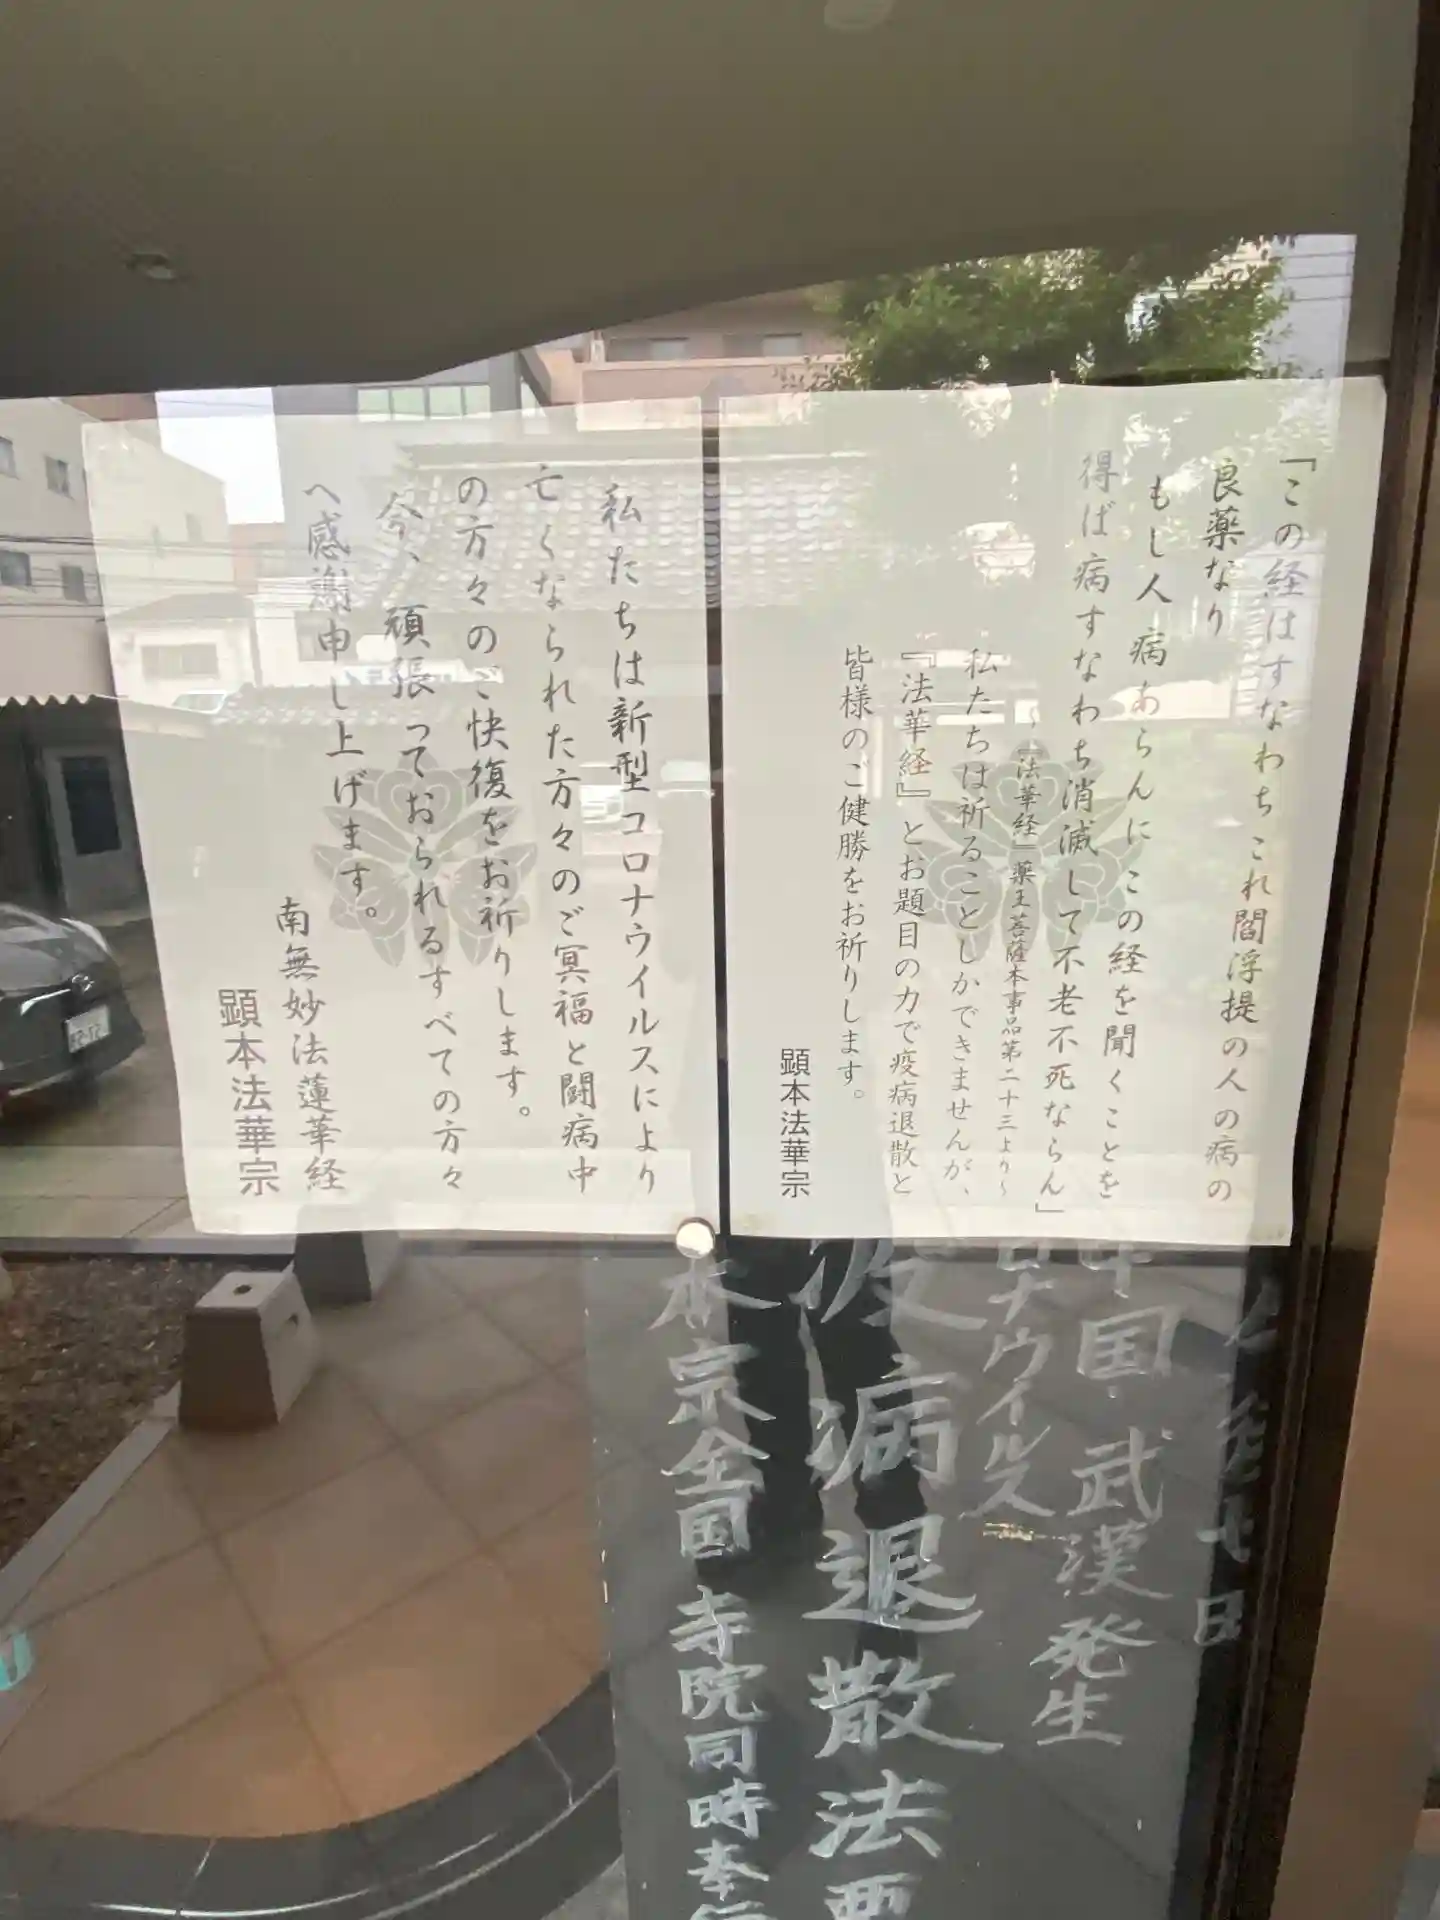 「この経はすなわちこれ閻浮提の人の病の
良薬なり
もし人 病あらんにこの経を聞くことを
得ば病すなわち消滅して不老不死ならん」
～『法華経』薬王菩薩本事品第二十三より～
私たちは祈ることしかできませんが、
『法華経』とお題目の力で疫病退散と
皆様のご健勝をお祈りします。
顕本法華宗
私たちは新型コロナウイルスにより
亡くなられた方々のご冥福と闘病中
の方々のご快復をお祈りします。
今、頑張っておられるすべての方々
へ感謝申し上げます。
南無妙法蓮華経
顕本法華宗
日
中国・武漢発生
コロナウイルス
疫病退散法要
本宗全国寺院同時奉